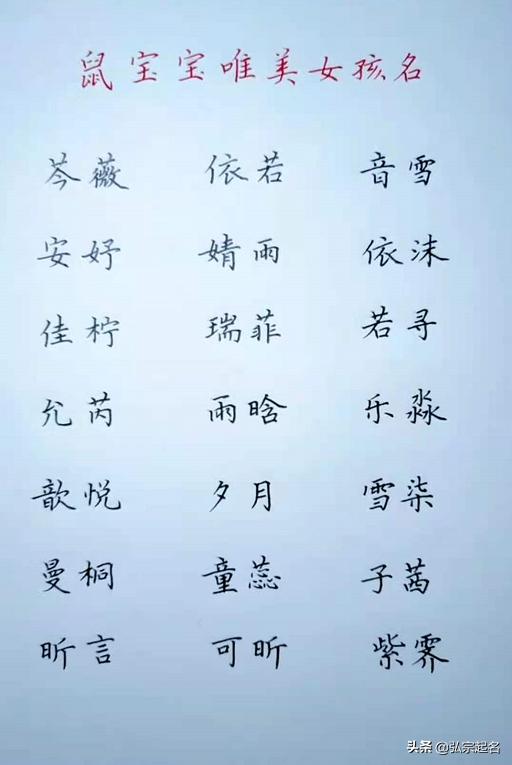 鼠宝宝唯美女孩名
芩薇 依若 音雪
安妤 婧雨 依沫
佳柠 瑞菲 若寻
允芮 雨晗 乐淼
歆悦 夕月 雪柒
曼桐 童蕊 子茜
昕言 可昕 紫霁
头条 @弘宗起名